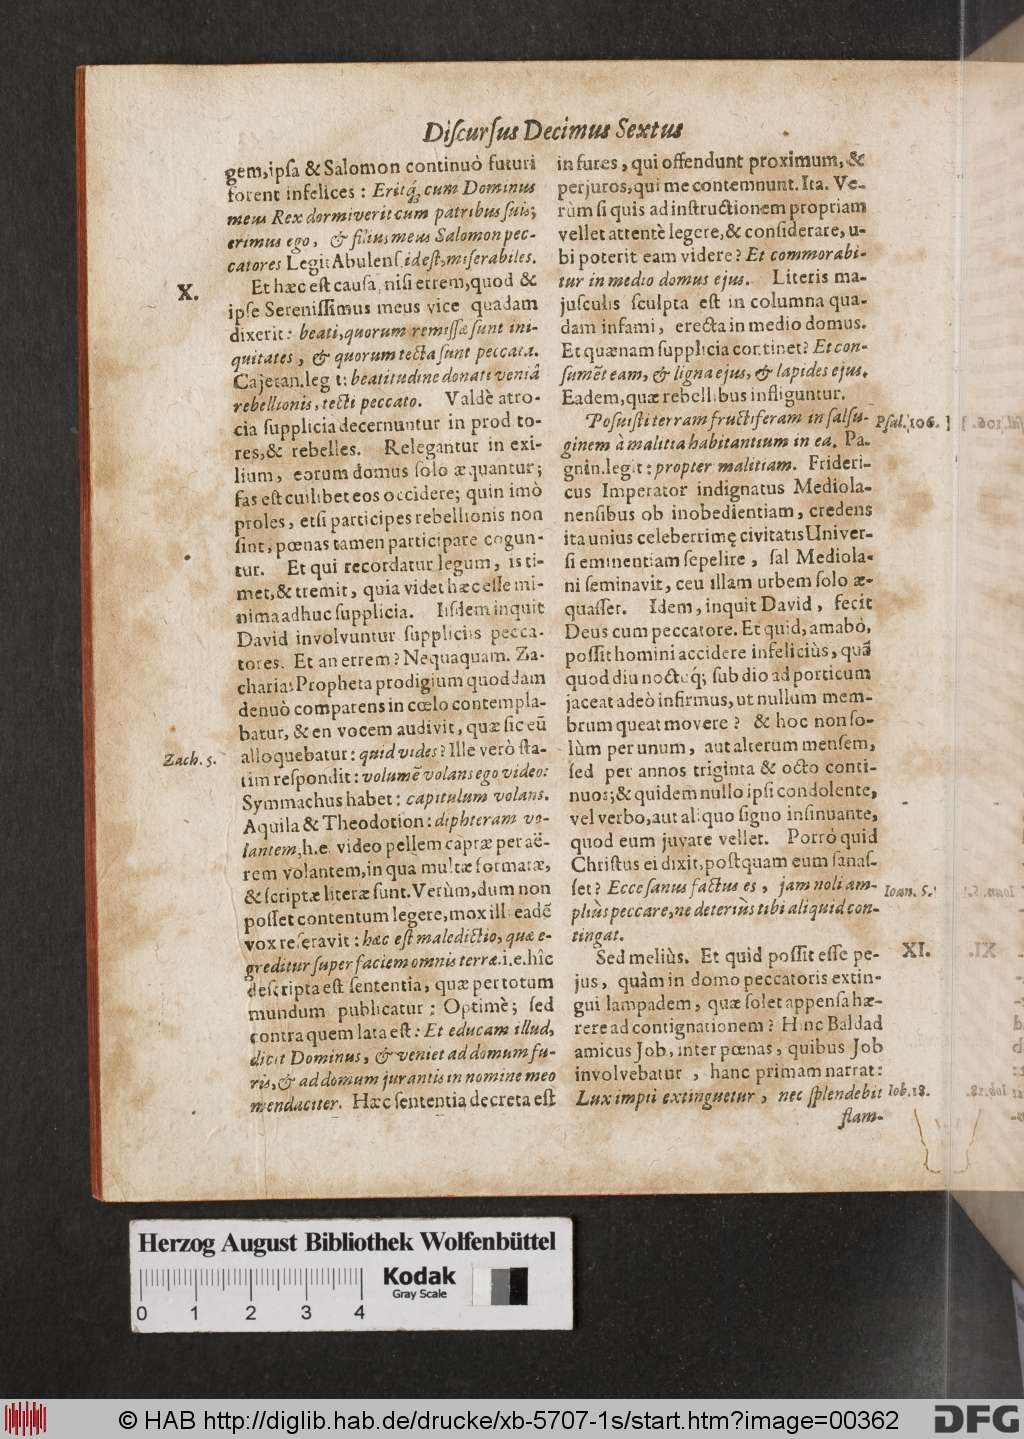 Diſcurſus Decimus Sextus
gem, ipſa & Salomon continuò futuri
forent infelices: Eritq́; cum Dominus
meus Rex dormiverit cum patribus ſuis;
erimus ego, & filius meus Salomon pec-
catores Legit Abulenſ. ideſt, miſerabiles.
X.
Et hæc eſt cauſa, niſi errem, quod &
ipſe Sereniſſimus meus vice quadam
dixerit: beati, quorum remiſſæ ſunt ini-
quitates, & quorum tecta ſunt peccata.
Cajetan. legit: beatitudine donati veniâ
rebellionis, tecti peccato. Valdè atro-
cia ſupplicia decernuntur in prodito-
res, & rebelles. Relegantur in exi-
lium, eorum domus ſolo æquantur;
fas eſt cuilibet eos occidere; quin imò
proles, etſi participes rebellionis non
ſint, pœnas tamen participare cogun-
tur. Et qui recordatur legum, is ti-
met, & tremit, quia videt hæc eſſe mi-
nima adhuc ſupplicia. Iiſdem inquit
David involvuntur ſuppliciis pecca-
tores. Et an errem? Nequaquam. Za-
charias Propheta prodigium quoddam
denuò comparens in cœlo contempla-
batur, & en vocem audivit, quæ ſic eū
Zach. 5.
alloquebatur: quid vides? Ille verò ſta-
tim reſpondit: volumē volans ego video:
Symmachus habet: capitulum volans.
Aquila & Theodotion: diphteram vo-
lantem, h.e. video pellem capræ per aë-
rem volantem, in qua multæ formatæ,
& ſcriptæ literæ ſunt. Verùm, dum non
poſſet contentum legere, mox illi eadē
vox reſeravit: hæc eſt maledictio, quæ e-
greditur ſuper faciem omnis terræ. i.e. hic
deſcripta eſt ſententia, quæ per totum
mundum publicatur: Optimè; ſed
contra quem lata eſt: Et educam illud,
dicit Dominus, & veniet ad domum fu-
ris, & ad domum jurantis in nomine meo
mendaciter. Hæc ſententia decreta eſt
in fures, qui offendunt proximum, &
perjuros, qui me contemnunt. Ita. Ve-
rùm ſi quis ad inſtructionem propriam
vellet attentè legere, & conſiderare, u-
bi poterit eam videre? Et commorabi-
tur in medio domus ejus. Literis ma-
juſculis ſculpta eſt in columna qua-
dam infami, erecta in medio domus.
Et quænam ſupplicia continet? Et con-
ſumēt eam, & ligna ejus, & lapides ejus.
Eadem, quæ rebellibus infliguntur.
Poſuiſti terram fructiferam in ſalſu-
Pſal. 106.
ginem à malitia habitantium in ea. Pa-
gnin. legit: propter malitiam. Frideri-
cus Imperator indignatus Mediola-
nenſibus ob inobedientiam, credens
ita unius celeberrimę civitatis Univer-
ſi eminentiam ſepelire, ſal Mediola-
ni ſeminavit, ceu illam urbem ſolo æ-
quaſſet. Idem, inquit David, fecit
Deus cum peccatore. Et quid, amabò,
poſſit homini accidere infelicius, quā
quod diu noctuq́; ſub dio ad porticum
jaceat adeò infirmus, ut nullum mem-
brum queat movere? & hoc non ſo-
lùm per unum, aut alterum menſem,
ſed per annos triginta & octo conti-
nuos; & quidem nullo ipſi condolente,
vel verbo, aut aliquo ſigno inſinuante,
quod eum juvare vellet. Porrò quid
Chriſtus ei dixit, poſtquam eum ſanaſ-
ſet? Ecce ſanus factus es, jam noli am-
Ioan. 5.
pliùs peccare, ne deterius tibi aliquid con-
tingat.
XI.
Sed meliùs. Et quid poſſit eſſe pe-
jus, quàm in domo peccatoris extin-
gui lampadem, quæ ſolet appenſa hæ-
rere ad contignationem? Hinc Baldad
amicus Job, inter pœnas, quibus Job
involvebatur, hanc primam narrat:
Lux impii extinguetur, nec ſplendebit
Iob. 18.
flam-
Herzog August Bibliothek Wolfenbüttel
Kodak
Gray Scale
0 1 2 3 4
© HAB http://diglib.hab.de/drucke/xb-5707-1s/start.htm?image=00362
DFG